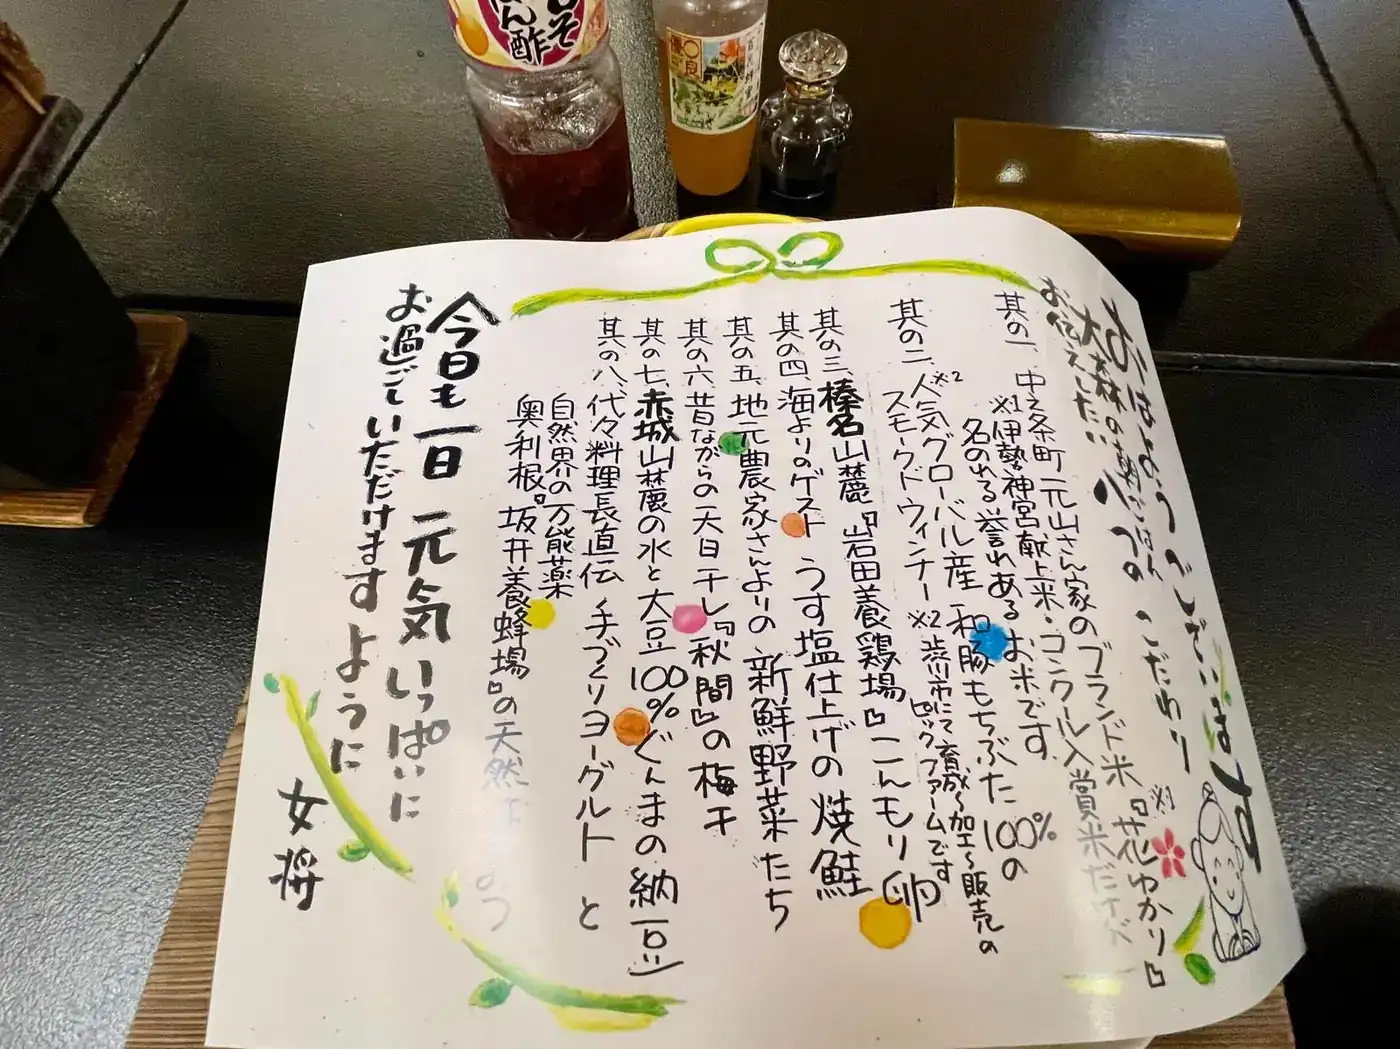 おはようございます
大森の朝ごはん こだわり
お伝えしたい 八つの
其の一、中之条町元山さん家のブランド米『花ゆかり』※1
※1伊勢神宮献上米・コンクール入賞米だけが
名のれる誉れあるお米です。
其の二、人気グローバル産 和豚もちぶた100%の
※2
スモークドウィンナー ※2渋川市にて育成〜加工〜販売の
ピッグファームです
其の三、榛名山麓『岩田養鶏場』こんもり卵
其の四、海よりのゲスト うす塩仕上げの焼鮭
其の五、地元農家さんよりの新鮮野菜たち
其の六、昔ながらの天日干し『秋間』の梅干
其の七、赤城山麓の水と大豆100%ぐんまの納豆
其の八、代々料理長直伝 手づくりヨーグルトと
自然界の万能薬
奥利根『坂井養蜂場』の天然
今日も一日 元気いっぱいに
お過ごしいただけますように
女将
ぽん酢